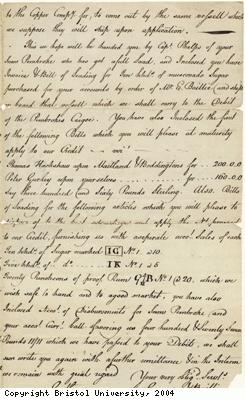 to the Copper Comp.y for, to come out by the same vessell which
we suppose they will ship upon application.
This we hope will be handed you by Cap.t Phelps of your
Snow Pembroke who has got a full Load, and Inclosed you have
Invoice & Bill of Loading for of muscovado Sugar
purchased for your accounts by order of M.r G. Buttler and ship
on board that vessell which we shall carry to the Debit
of the Pembroke's Cargoe. You have also Inclosed the first
of the following Bills which you will please at maturity
apply to our Credit
Thomas upon Maitland & Boddingtons for 200.0.0
Peter upon yourselves for 160.0.0
Say three hundred and Sixty Pounds Sterling. Also Bills
of Loading for the following articles which you will please to
of to the best advantage and apply the N.t proceeds
to our Credit, furnishing us with seperate acco.t Sales of each
of Sugar marked IG N.o 1 a 10.
of IK N.o 1 a 5
Twenty Puncheons of proof Rum G&B N.o 1 @ 20. which we
wish safe to hand and to a good market, you have also
Inclosed Acco.t of disbursements for Snow Pembroke and
your acco.t Curr.t Ball. favoring us four hundred & twenty Seven
Pounds 11/11 which we have passed to your Debit, we shall
soon write you again with a further remittance & in the Interim
we remain with great regard Your very
Copyright Bristol University, 2004